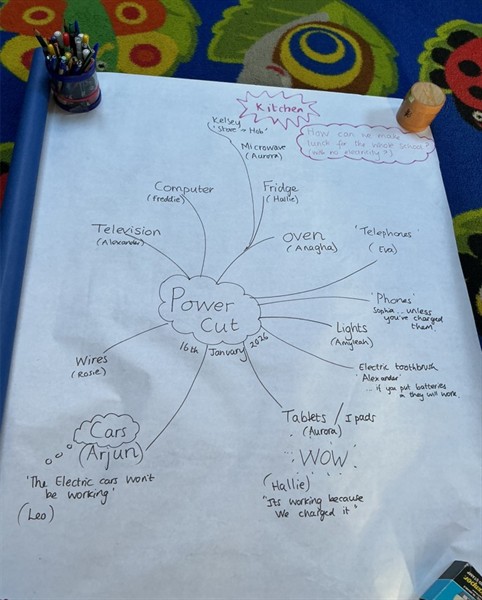 Kitchen
Kelsey
'Stove → Hob'
How can we make
lunch for the whole school?
(with no electricity?)
Microwave
(Aurora)
Computer
(Freddie)
Fridge
(Hallie)
Television
(Alexander)
oven
(Anagha)
'Telephones'
(Eva)
Power
Cut
16th January 2026
'Phones'
Sophia... unless
you've charged
them'
Lights
(Amyleah)
Wires
(Rosie)
Electric toothbrush
'Alexander'
... if you put batteries
in they will work.
Tablets / Ipads
(Aurora)
WOW
(Hallie)
"Its working because
We charged it"
Cars
(Arjun)
'The Electric cars won't
be working'
(Leo)